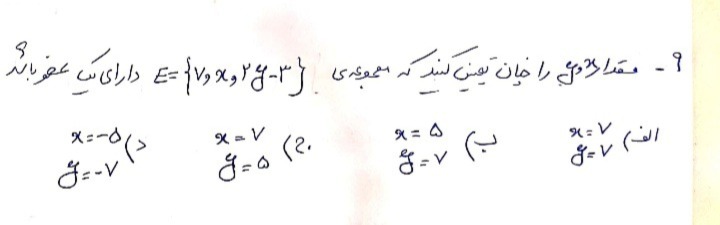 ۹ - مقدار x و y را چنان تعیین کنید که مجموعه‌ی E={۷, x, ۲y-۳} دارای یک عضو باشد؟
الف) x=۷ ب) x=۵ ج) x=۷ د) x=-۵
y=۷ y=۷ y=۵ y=-۷